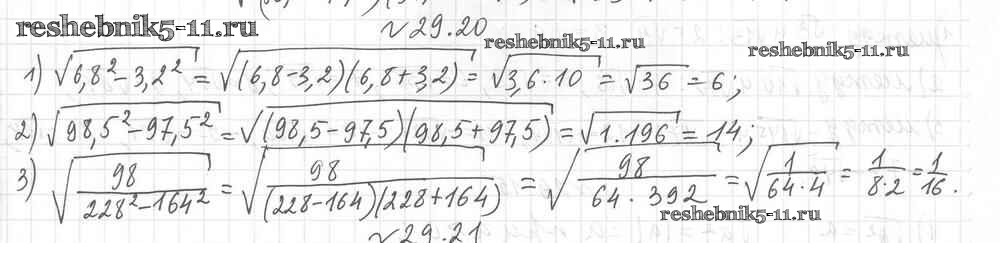 reshebnik5-11.ru
№29.20
reshebnik5-11.ru
reshebnik5-11.ru
1) √(6,8² − 3,2²) = √((6,8−3,2)(6,8+3,2)) = √(3,6·10) = √36 = 6;
2) √(98,5² − 97,5²) = √((98,5−97,5)(98,5+97,5)) = √(1·196) = 14;
3) √(98/(228²−164²)) = √(98/((228−164)(228+164))) = √(98/(64·392)) = √(1/(64·4)) = 1/(8·2) = 1/16.
reshebnik5-11.ru
№29.21